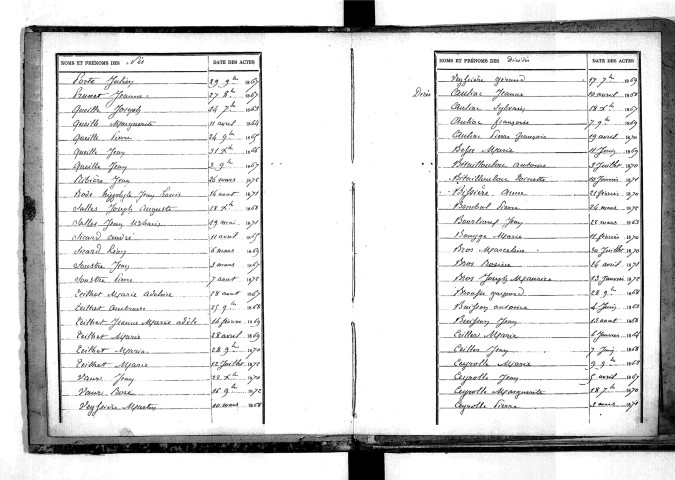 NOMS ET PRÉNOMS DES Nés DATE DES ACTES
Porte Julien 29 9bre 1867
Prunet Jeanne 27 8bre 1867
Queille Joseph 24 7bre 1863
Queille Marguerite 11 avril 1864
Queille Pierre 24 9bre 1865
Queille Jean 31 Xbre 1866
Queille Jean 3 9bre 1867
Ribière Jean 26 mars 1872
Jean Louis 14 aout 1871
Salles Joseph Auguste 18 Xbre 1868
Salles Jean Urbain 29 mai 1871
Sicard André 11 avril 1865
Sicard Rémy 6 mars 1869
Soustre Jean 3 mars 1867
Soustre Pierre 7 aout 1872
Teilhet Marie Adeline 28 aout 1867
Teilhet Ambroise 25 9bre 1868
Teilhet Jeanne Marie Adèle 14 février 1869
Teilhet Marie 28 avril 1869
Teilhet Maria 28 9bre 1870
Teilhet Marie 12 Juillet 1872
Vaur Jean 22 Xbre 1870
Vaur Rose 16 9bre 1872
Veyssière Martin 10 mars 1868
NOMS ET PRÉNOMS DES Décédés DATE DES ACTES
Veyssière Géraud 17 7bre 1869
Décès Antiac Jeanne 10 avril 1868
Antiac Sylvain 18 Xbre 1867
Antiac françoise 7 9bre 1869
Antiac Pierre françois 19 avril 1870
Marie 11 Juin 1869
Bétaillouloux Antoine 3 Juillet 1870
Bétaillouloux Toinette 10 Janvier 1871
Bissière Anne 21 février 1870
Bombal Pierre 24 mars 1872
Jean 22 mars 1863
Bouyge Marie 11 février 1870
Bros Marceline 20 Juillet 1870
Bros Rosine 24 avril 1871
Bros Joseph Maurice 23 Janvier 1872
28 9bre 1868
Buisson Antoine 4 Juin 1863
Buisson Jean 13 aout 1868
Marie 6 Janvier 1864
Jean 7 Juin 1868
Ceyrolle Marie 9 9bre 1863
Ceyrolle Jean 5 avril 1867
Ceyrolle Marguerite 28 7bre 1870
Ceyrolle Pierre mars 1871